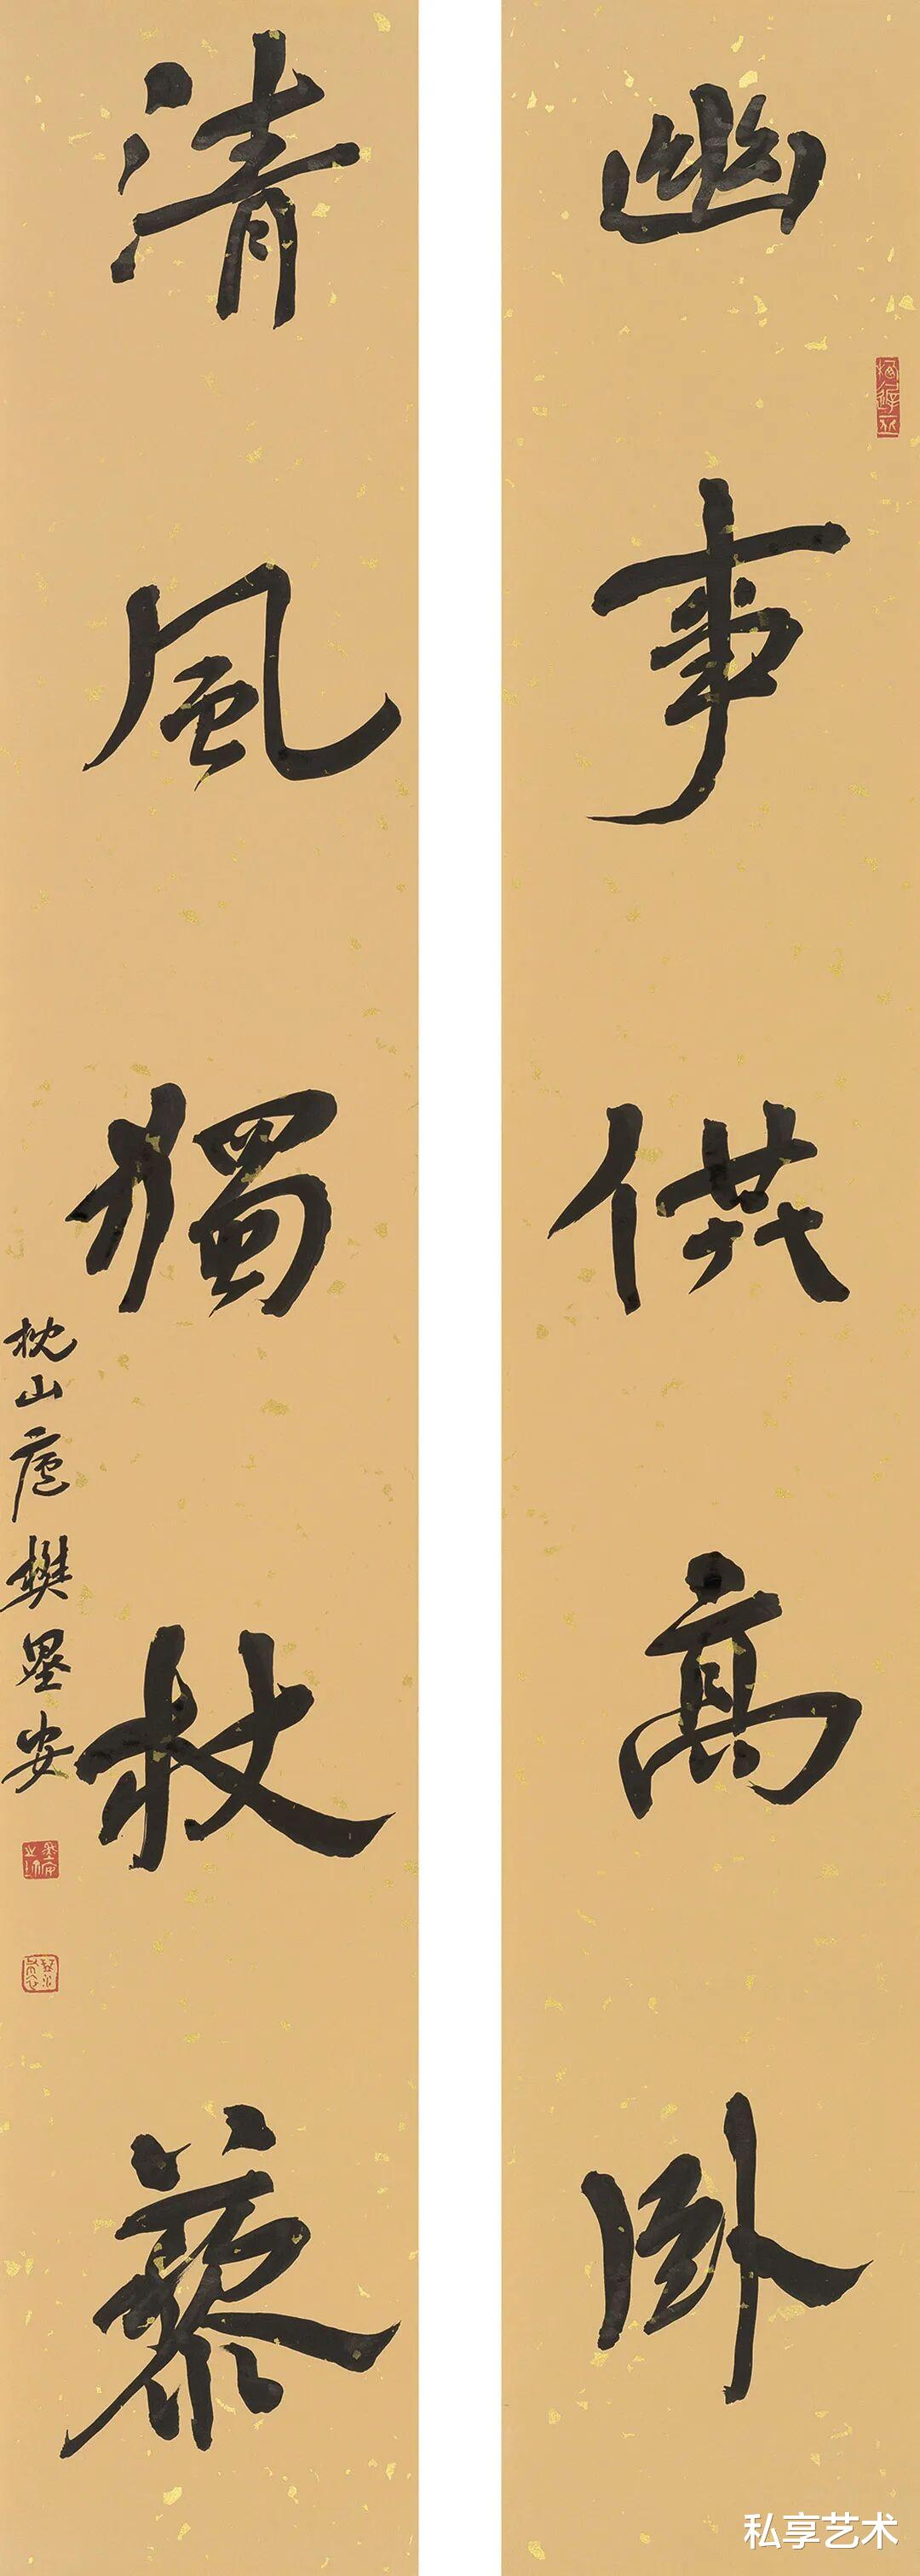 幽事供高卧
清風獨杖藜
枕山廬樊墨安
私享艺术